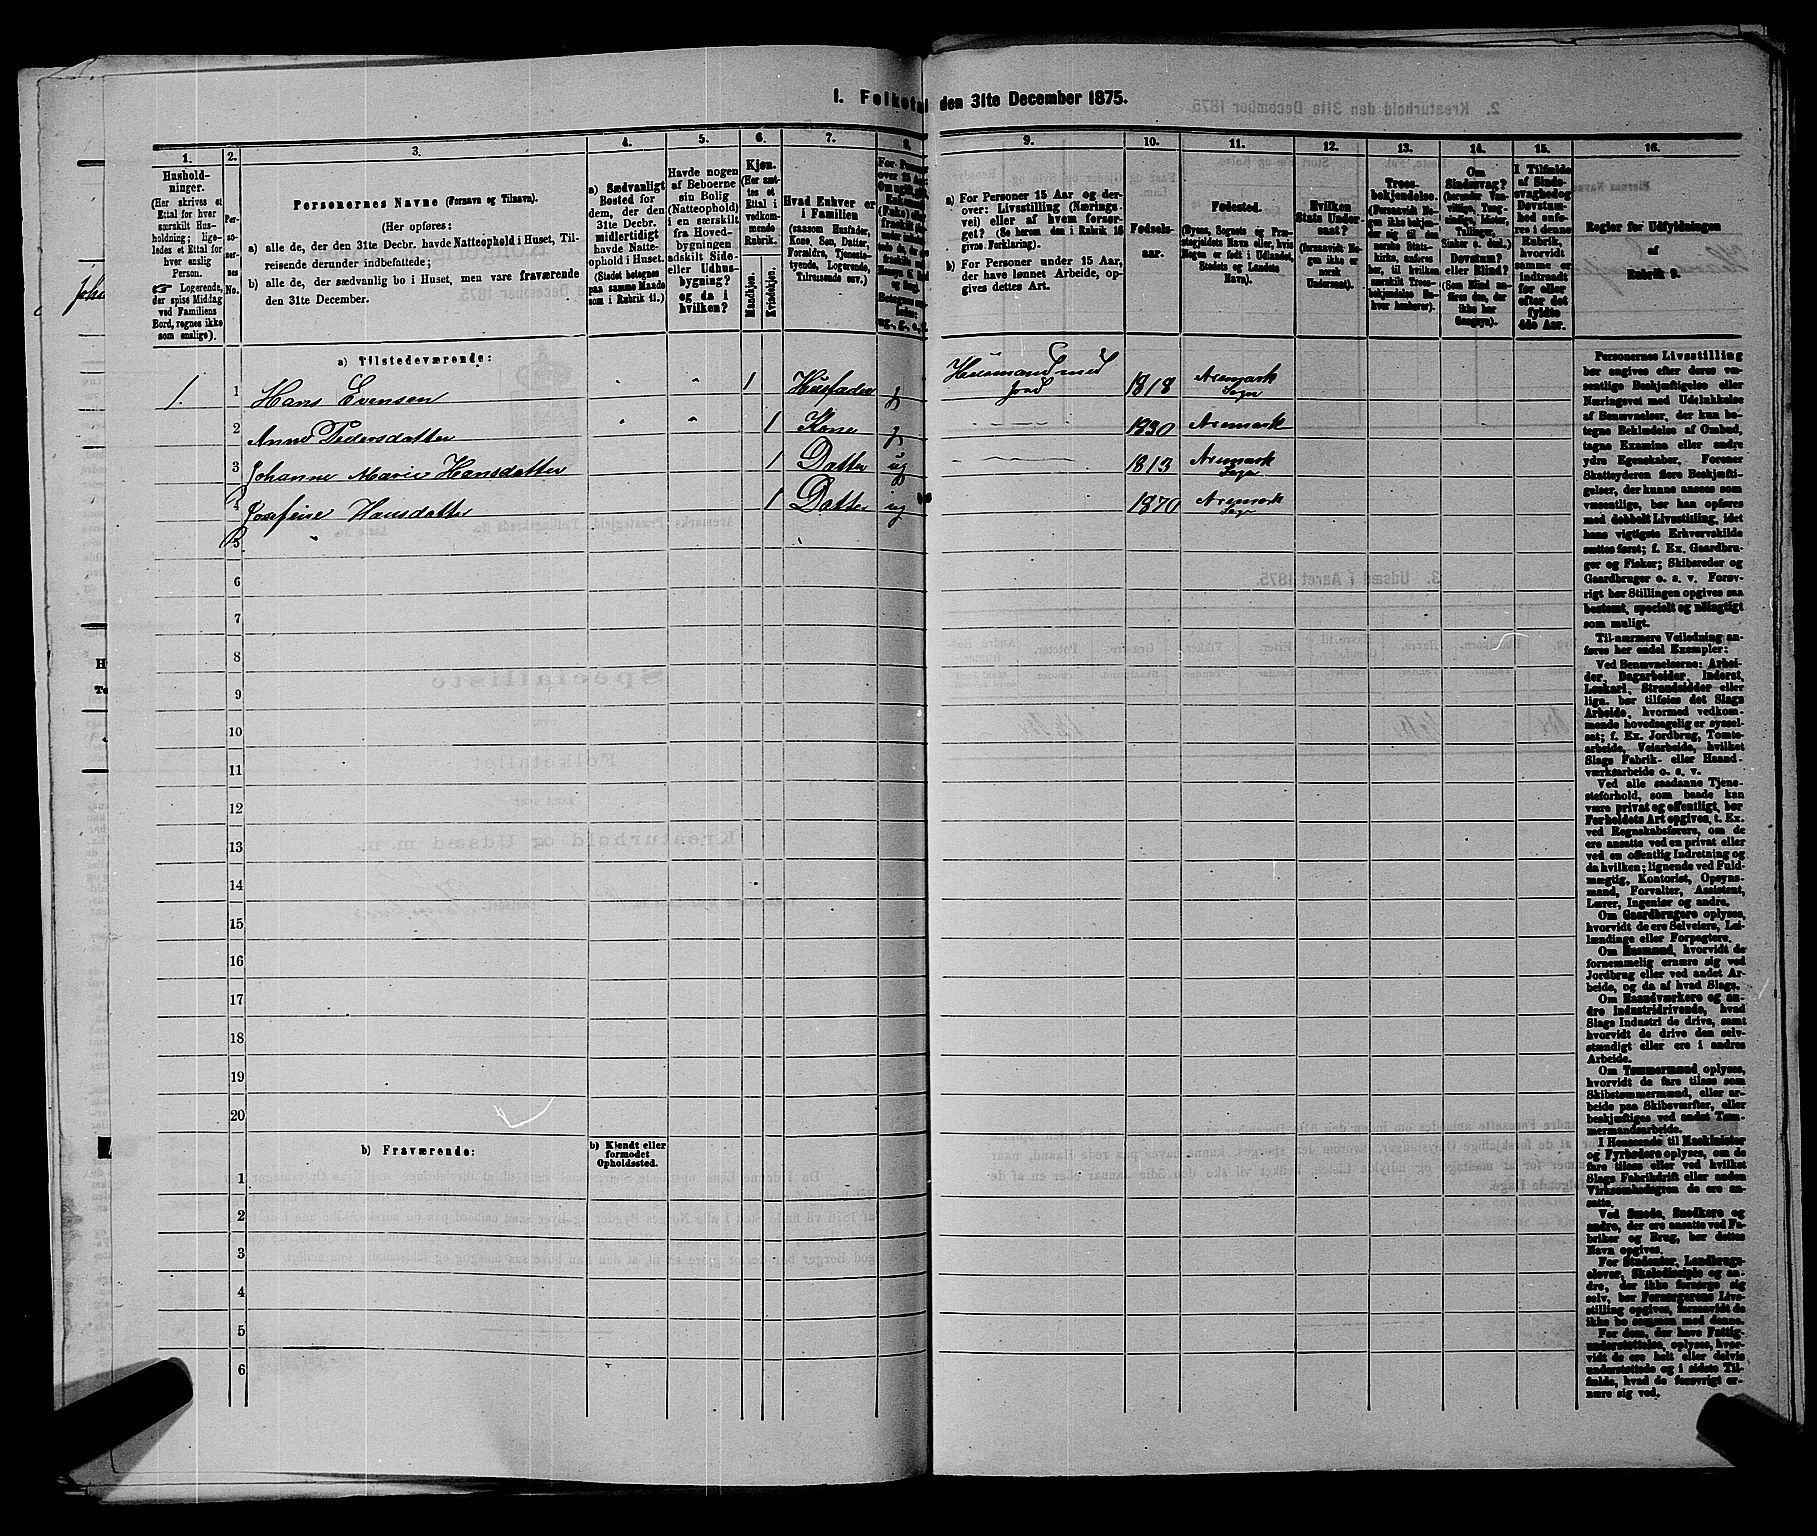 1. Folketal den 31te December 1875.
1.
Hushold-
ninger.
(Her skrives et
Ettal for hver
særskilt Hus-
holdning; lige-
ledes et Ettal for
hver enslig
Person.
☞ Logerende,
der spise Middag
ved Familiens
Bord, regnes ikke
som enslige).
2.
Per-
so-
ner-
nes
No.
3.
Personernes Navne (Fornavn og Tilnavn).
(Her opføres:
a) alle de, der den 31te Decbr. havde Natteophold i Huset, Til-
reisende derunder indbefattede;
b) alle de, der sædvanlig bo i Huset, men vare fraværende
den 31te December.
4.
a) Sædvanligt
Bosted for
dem, der den
31te Decbr.
midlertidigt
havde Natte-
ophold i Huset.
(Stedet betegnes
paa samme Maade
som i Rubrik 11.)
5.
Havde nogen
af Beboerne
sin Bolig
(Natteophold)
i en særskilt
fra Hoved-
bygningen
adskilt Side-
eller Udhus-
bygning?
og da i
hvilken?
6.
Kjøn.
(Her sæt-
tes et
Ettal i
vedkom-
mende
Rubrik.
Mandkjøn.
Kvindekjøn.
7.
Hvad Enhver er
i Familien
(saasom Husfader,
Kone, Søn, Datter,
Forældre, Tjeneste-
tyende, Logerende,
Tilreisende osv.)
8.
9.
a) For Personer 15 Aar og der-
over: Livsstilling (Nærings-
vei) eller af hvem forsør-
get? (Se herom den i Rubrik 16
givne Forklaring).
b) For Personer under 15 Aar,
der have lønnet Arbeide, op-
gives dettes Art.
10.
Fødsels-
aar.
11.
Fødested.
(Byens, Sognets og Præ-
stegjeldets Navn eller, hvis
Nogen er født i Udlandet,
Stedets og Landets
Navn).
12.
Hvilken
Stats Under-
saat?
(forsaavidt No-
gen ikke er
norsk
Undersaat).
13.
Troes-
bekjendelse.
(Forsaavidt No-
gen ikke bekjen-
der sig til den
norske Stats-
kirke, anføres
her, til hvilken
særskilt Troes-
bekjendelse En-
hver henhører).
14.
Om
Sindssvag?
Døvstum?
eller Blind?
(Som Blind an-
føres den, der
ikke har
Gangsyn).
15.
I Tilfælde
af Sinds-
svaghed og
Døvstum-
hed anfø-
res i denne
Rubrik,
hvorvidt
samme er
indtraadt
før eller
efter det
fyldte
4de Aar.
16.
Regler for Udfyldningen
af
Rubrik 9.
a) Tilstedeværende:
1 1 Hans Evensen 1 Husfader g Huusmand med Jord 1818 Aremark Sogn
2 Anne Pedersdatter 1 Kone g 1830 Aremark
3 Johanne Marie Hansdatter 1 Datter ug 1813 Aremark Sogn
4 Josefine Hansdatter 1 Datter ug 1870 Aremark Sogn
5
6
7
8
9
10
11
12
13
14
15
16
17
18
19
20
b) Fraværende:
b) Kjendt eller
formodet
Opholdssted.
1
2
3
4
5
6
Personernes Livsstilling
bør angives efter deres væ-
sentlige Beskjæftigelse eller
Næringsvei med Udelukkelse
af Benævnelser, der kun be-
tegne Beklædelse af Ombud,
tagne Examina eller andre
ydre Egenskaber. Forener
Skatteyderen flere Beskjæfti-
gelser, der kunne ansees som
væsentlige, bør han opføres
med dobbelt Livsstilling, idet
hans vigtigste Erhvervskilde
sættes først; f. Ex. Gaardbru-
ger og Fisker; Skibsreder og
Gaardbruger o. s. v. Forøv-
rigt bør Stillingen opgives saa
bestemt, specielt og nøiagtigt
som muligt.
Til nærmere Veiledning an-
føres her endel Exempler:
Ved Benævnelserne: Arbei-
der, Dagarbeider, Inderst,
Løskarl, Strandsidder eller
lign. bør tilføies det Slags
Arbeide, hvormed vedkom-
mende hovedsagelig er syssel-
sat; f. Ex. Jordbrug, Tomte-
arbeide, Veiarbeide, hvilket
Slags Fabrik- eller Haand-
værksarbeide o. s. v.
Ved alle saadanne Tjene-
steforhold, som baade kan
være privat og offentligt, bør
Forholdets Art opgives, t. Ex.
ved Regnskabsførere, om de
ere ansatte ved en privat eller
ved en offentlig Indretning og
da hvilken; lignende ved Fuld-
mægtig, Kontorist, Opsyns-
mand, Forvalter, Assistent,
Lærer, Ingeniør og andre.
Om Gaardbrugere oplyses,
hvorvidt de ere Selveiere, Lei-
lændinge eller Forpagtere.
Om Husmænd, hvorvidt de
fornemmelig ernære sig ved
Jordbrug eller ved andet Ar-
beide, og da af hvad Slags.
Om Haandværkere og an-
dre Industridrivende, hvad
Slags Industri de drive, samt
hvorvidt de drive den selv-
stændigt eller ere i andres
Arbeide.
Om Tømmermænd oplyses,
hvorvidt de fare tilsøs som
Skibstømmermænd, eller ar-
beide paa Skibsværfter, eller
beskjæftiges ved andet Tøm-
mermandsarbeide.
I Henseende til Maskinister
og Fyrbødere oplyses, om de
fare tilsøs eller ved hvilket
Slags Fabrikdrift eller anden
Virksomhedsgren de ere an-
satte.
Ved Smede, Snedkere og
andre, der ere ansatte ved Fa-
briker og Brug, bør dettes
Navn opgives.
For Studenter, Landbrugs-
elever, Skoledisciple og an-
dre, der ikke forsørge sig
selv, bør Forsørgerens Livs-
stilling opgives, forsaavidt de
ikke bo sammen med denne.
For dem, der have Fattig-
understøttelse, oplyses, hvor-
vidt de ere helt eller delvis
understøttede og i sidste Til-
fælde, hvad de forøvrigt er-
nære sig ved.